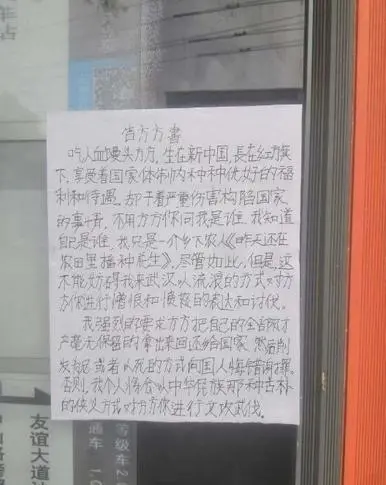 告方方書
吃人血馒头方方,生在新中国,長在红旗
下,享受着国家体制内种种优好的福
利和待遇,却干着严重伤害构陷国家
的事情,不用方方你问我是谁,我知道
自己是谁,我只是一个乡下农人《昨天还在
农田里播种花生》,尽管如此,但是,这
不能妨碍我来武汉以流浪的方式对方
方你进行憎恨和愤怒的表达和讨伐。
我强烈的要求方方把自己的全部财才
产毫无保留的拿出来回还给国家,然后削
发为尼或者以死的方式向国人悔错谢罪。
否则,我个人将会以中华民族那种古朴
的侠义方式对方方你进行文攻武伐。
车站
友谊大道
等级车
通车